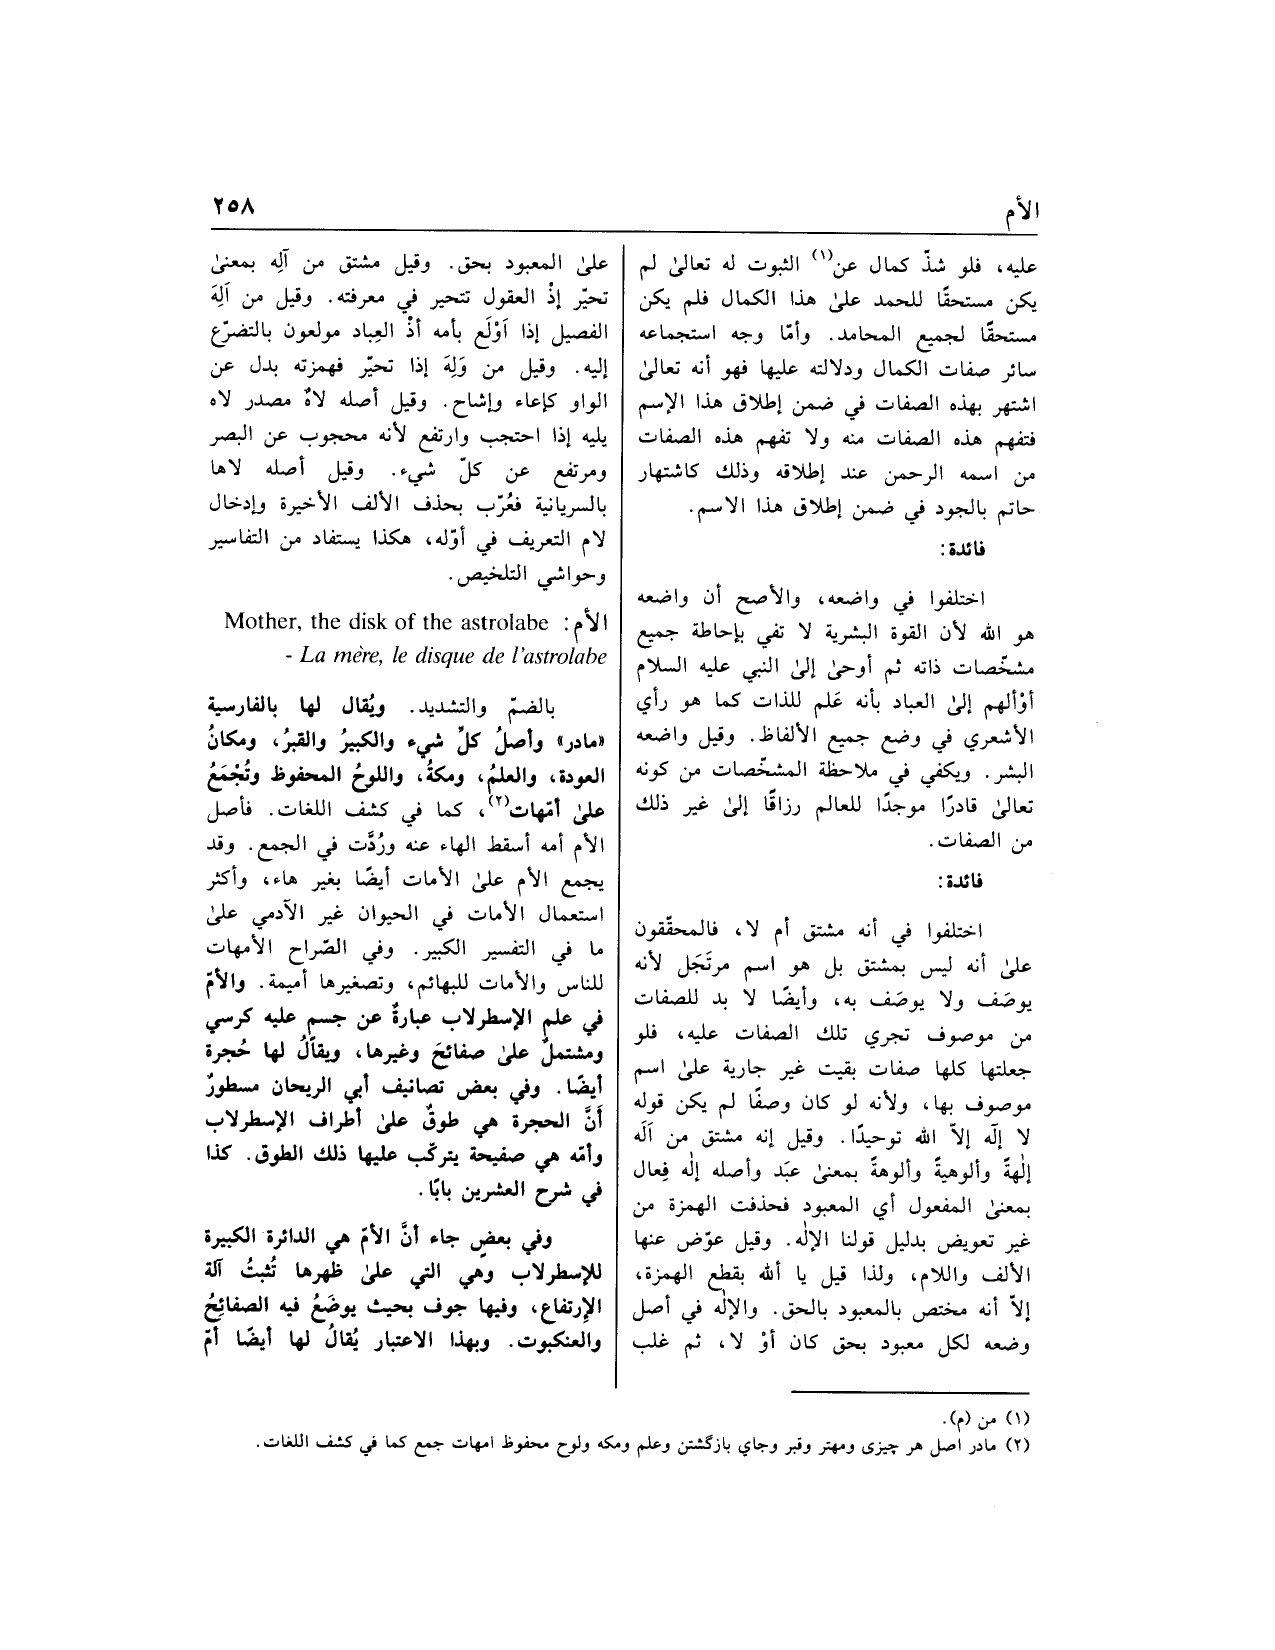 الأم
٢٥٨
عليه، فلو شذّ كمال عن(١) الثبوت له تعالىٰ لم
يكن مستحقًا للحمد علىٰ هذا الكمال فلم يكن
مستحقًا لجميع المحامد. وأمّا وجه استجماعه
سائر صفات الكمال ودلالته عليها فهو أنه تعالىٰ
اشتهر بهذه الصفات في ضمن إطلاق هذا الإسم
فتفهم هذه الصفات منه ولا تفهم هذه الصفات
من اسمه الرحمن عند إطلاقه وذلك كاشتهار
حاتم بالجود في ضمن إطلاق هذا الاسم.
فائدة:
اختلفوا في واضعه، والأصح أن واضعه
هو الله لأن القوة البشرية لا تفي بإحاطة جميع
مشخّصات ذاته ثم أوحىٰ إلىٰ النبي عليه السلام
أوْألهم إلىٰ العباد بأنه عَلم للذات كما هو رأي
الأشعري في وضع جميع الألفاظ. وقيل واضعه
البشر. ويكفي في ملاحظة المشخّصات من كونه
تعالىٰ قادرًا موجدًا للعالم رزاقًا إلىٰ غير ذلك
من الصفات.
فائدة:
اختلفوا في أنه مشتق أم لا، فالمحقّقون
علىٰ أنه ليس بمشتق بل هو اسم مرتَجَل لأنه
يوصَف ولا يوصَف به، وأيضًا لا بد للصفات
من موصوف تجري تلك الصفات عليه، فلو
جعلتها كلها صفات بقيت غير جارية علىٰ اسم
موصوف بها، ولأنه لو كان وصفًا لم يكن قوله
لا إلَه إلاّ الله توحيدًا. وقيل إنه مشتق من آلَه
إلٰهةً وألوهيةً وألوهةً بمعنىٰ عبَد وأصله إلٰه فِعال
بمعنىٰ المفعول أي المعبود فحذفت الهمزة من
غير تعويض بدليل قولنا الإلٰه. وقيل عوّض عنها
الألف واللام، ولذا قيل يا أللّه بقطع الهمزة،
إلاّ أنه مختص بالمعبود بالحق. والإلٰه في أصل
وضعه لكل معبود بحق كان أوْ لا، ثم غلب
علىٰ المعبود بحق. وقيل مشتق من آلِه بمعنىٰ
تحيّر إذْ العقول تتحير في معرفته. وقيل من آلِهَ
الفصيل إذا اَوْلَع بأمه أذْ العِباد مولعون بالتضرّع
إليه. وقيل من وَلِهَ إذا تحيّر فهمزته بدل عن
الواو كإعاء وإشاح. وقيل أصله لاهٌ مصدر لاه
يليه إذا احتجب وارتفع لأنه محجوب عن البصر
ومرتفع عن كلّ شيء. وقيل أصله لاها
بالسريانية فعُرّب بحذف الألف الأخيرة وإدخال
لام التعريف في أوّله، هكذا يستفاد من التفاسير
وحواشي التلخيص.
الأم: Mother, the disk of the astrolabe
- La mère, le disque de l'astrolabe
بالضمّ والتشديد. ويُقال لها بالفارسية
«مادر» وأصلُ كلِّ شيء والكبيرُ والقبرُ، ومكانُ
العودة، والعلمُ، ومكةُ، واللوحُ المحفوظ وتُجْمَعُ
علىٰ أمّهات(٢)، كما في كشف اللغات. فأصل
الأم أمه أسقط الهاء عنه ورُدَّت في الجمع. وقد
يجمع الأم علىٰ الأمات أيضًا بغير هاء، وأكثر
استعمال الأمات في الحيوان غير الآدمي علىٰ
ما في التفسير الكبير. وفي الصّراح الأمهات
للناس والأمات للبهائم، وتصغيرها أميمة. والأمّ
في علم الإسطرلاب عبارةٌ عن جسم عليه كرسي
ومشتملٌ علىٰ صفائحَ وغيرها، ويقالُ لها حُجرة
أيضًا. وفي بعض تصانيف أبي الريحان مسطورٌ
أنَّ الحجرة هي طوقٌ علىٰ أطراف الإسطرلاب
وأمّه هي صفيحة يتركّب عليها ذلك الطوق. كذا
في شرح العشرين بابًا.
وفي بعضٍ جاء أنَّ الأمّ هي الدائرة الكبيرة
للإسطرلاب وهي التي علىٰ ظهرها تُثبتُ آلة
الإرتفاع، وفيها جوف بحيث يوضَعُ فيه الصفائحُ
والعنكبوت. وبهذا الاعتبار يُقالُ لها أيضًا أمّ
(١) من (م).
(٢) مادر اصل هر چيزى ومهتر وقبر وجاي بازگشتن وعلم ومكه ولوح محفوظ امهات جمع كما في كشف اللغات.